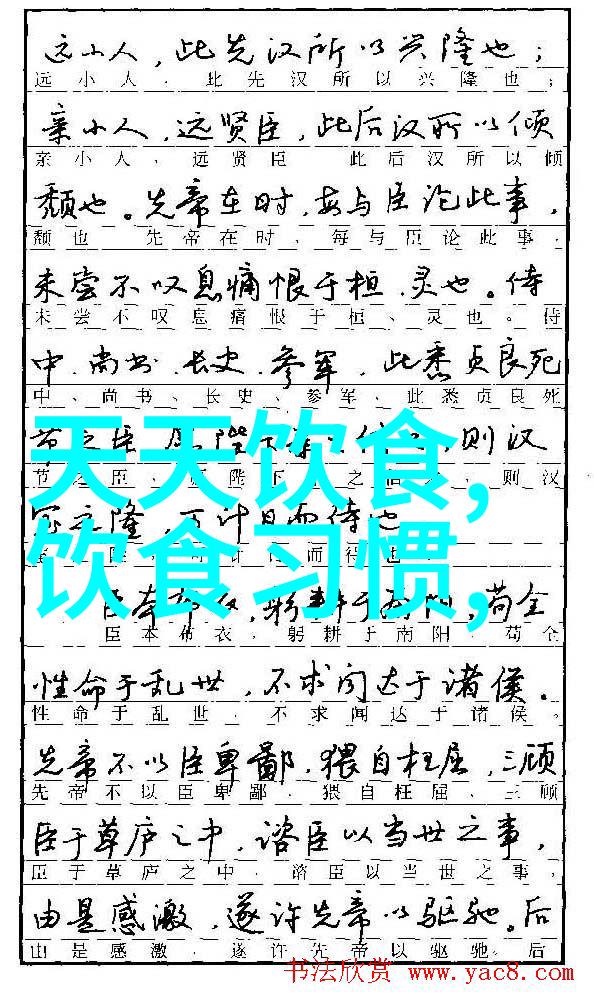 远小人，此先汉所以兴隆也；
远小人，此先汉所以兴隆也；
亲小人，远贤臣，此后汉所以倾
亲小人、远贤臣 此后汉所以倾
颓也。先帝在时，每与臣论此事，
颓也 先帝在时，每与臣论此事，
未尝不叹息痛恨于桓、灵也。侍
未尝不叹息痛恨于桓、灵也。侍
中、尚书、长史、参军，此悉贞良死
中、尚书、长史、参军、此悉贞良死
节之臣，陛，则汉
节之臣、陛下之，则汉
天天饮食,
室之隆，可计日而待也
而得也
饮食习惯,
臣本布衣，躬耕于南阳，苟全
臣本布衣，躬耕于南阳，苟全
性命于乱世，不求闻达于诸侯。
性命于乱世，不求闻达于诸侯。
先帝不以臣卑鄙，猥自枉屈，三顾
先帝不以臣卑鄙，猥自枉屈、三顾
臣于草庐之中，谘臣以当世之事，
臣于草庐之中，谘臣以当世之事，
由是感激，遂许先帝以驱驰。后
由是感激，遂许先帝以驱驰。后
书法欣赏 www.yac8.com